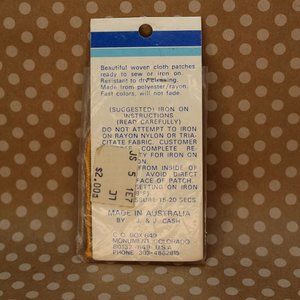 Beautiful woven cloth patches
ready to sew or iron on
Resistant to dry cleaning.
Made from polyester/rayon.
Fast colors, will not fade.
(SUGGESTED) IRON ON
INSTRUCTIONS
(READ CAREFULLY)
DO NOT ATTEMPT TO IRON
ON RAYON NYLON OR TRIA-
CITATE FABRIC. CUSTOMER
COMPLETE RE-
FOR IRON ON
FROM INSIDE OF
AVOID DIRECT
FACE OF PATCH.
SETTING ON IRON
15-20 SECS
MADE IN AUSTRALIA
BY J. & J. CASH
P.O. BOX 649
MONUMENT, COLORADO
80132 U.S.A
PHONE 303-4882815